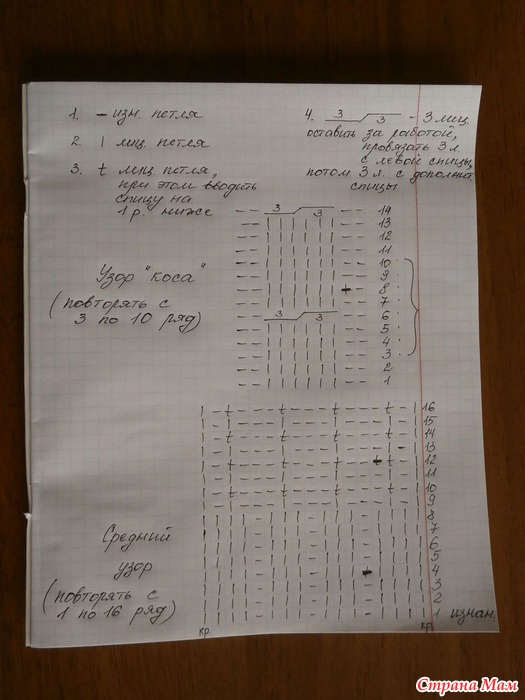 1. – изн. петля
2. | лиц. петля
3. t лиц петля,
при этом вводить
спицу на
1 р. ниже
4. 3 3 - 3 лиц.
оставить за работой,
провязать 3 л
с левой спицы,
потом 3 л. с дополнит
спицы
Узор "коса"
(повторять с
3 по 10 ряд)
3 3 14
13
12
11
10
9
8
7
3 3 6
5
4
3
2
1
16
15
14
13
12
11
10
9
8
7
6
5
4
3
2
1 изнан.
Средний
узор
(повторять с
1 по 16 ряд)
кр. кр.
Страна Мам